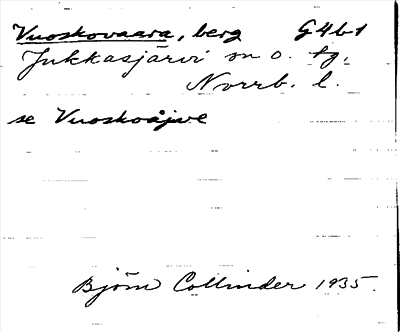 Vuoskovaara, berg G4b1
Jukkasjärvi sn o. tg.
Norrb. l.
se Vuoskoåjve
Björn Collinder 1935.